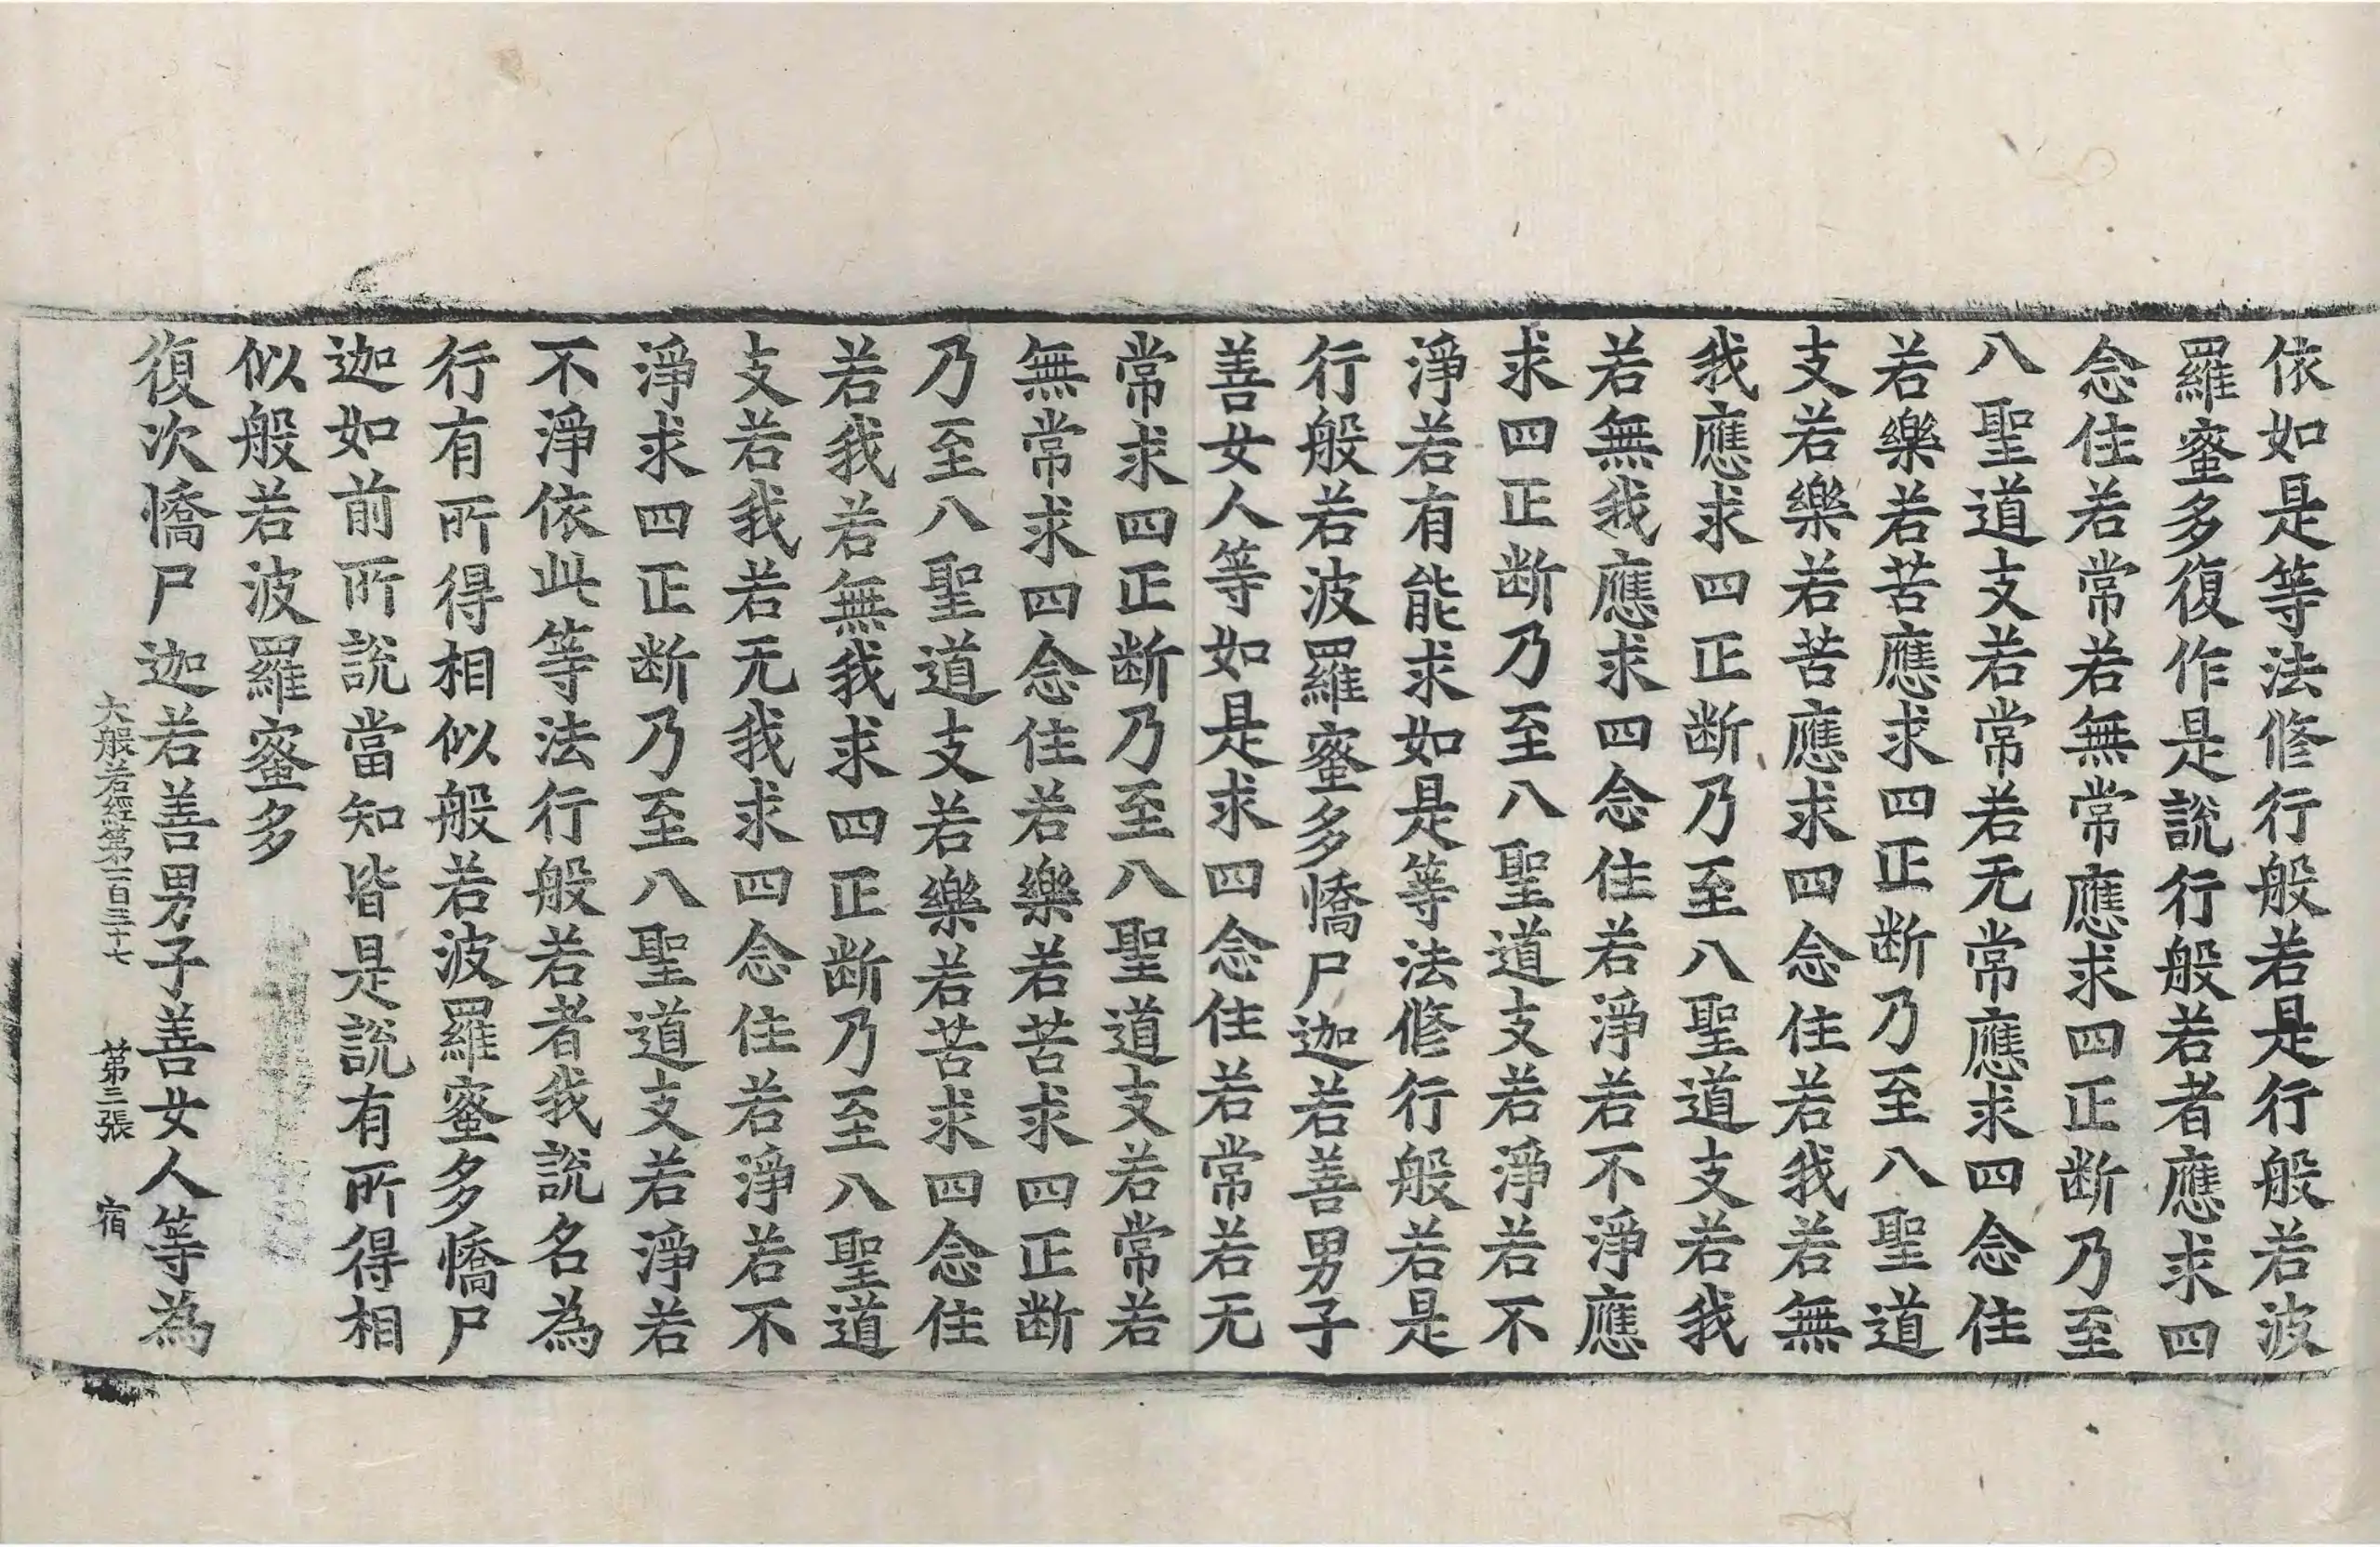 依如是等法修行般若是行般若波
羅蜜多復作是說行般若者應求四
念住若常若無常應求四正断乃至
八聖道支若常若无常應求四念住
若樂若苦應求四正断乃至八聖道
支若樂若苦應求四念住若我若無
我應求四正断乃至八聖道支若我
若無我應求四念住若淨若不淨應
求四正断乃至八聖道支若淨若不
淨若有能求如是等法修行般若是
行般若波羅蜜多憍尸迦若善男子
善女人等如是求四念住若常若无
常求四正断乃至八聖道支若常若
無常求四念住若樂若苦求四正断
乃至八聖道支若樂若苦求四念住
若我若無我求四正断乃至八聖道
支若我若无我求四念住若淨若不
淨求四正断乃至八聖道支若淨若
不淨依此等法行般若者我說名為
行有所得相似般若波羅蜜多憍尸
迦如前所說當知皆是說有所得相
似般若波羅蜜多
復次憍尸迦若善男子善女人等為
大般若經第一百三十七 第三張 宿